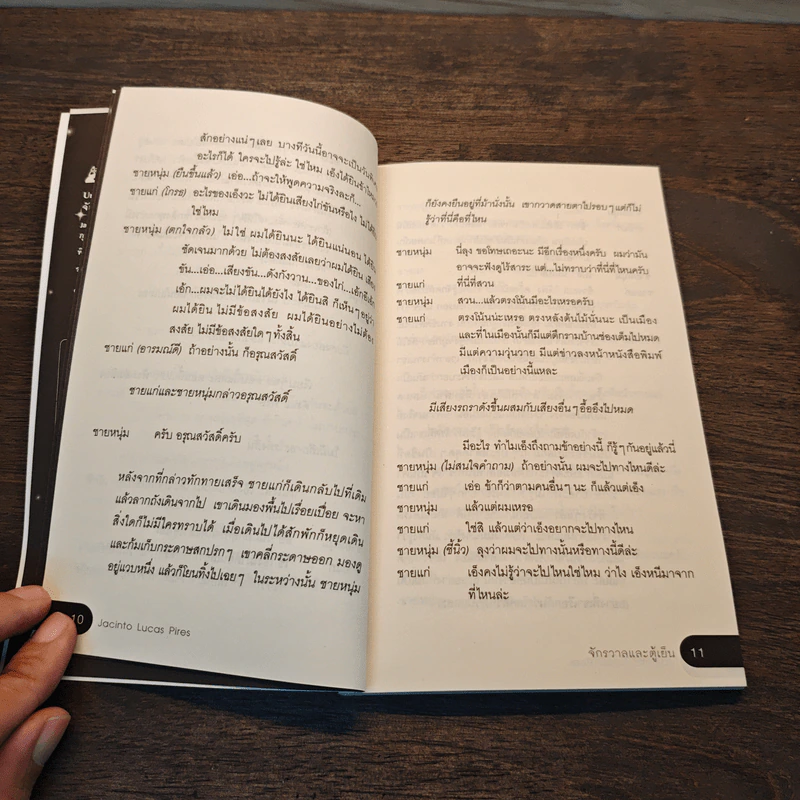 สักอย่างแน่ๆเลย บางทีวันนี้อาจจะเป็นวัน
อะไรก็ได้ ใครจะไปรู้ล่ะ ใช่ไหม เอ็งได้ยิน
ชายหนุ่ม (ยืนขึ้นแล้ว) เอ่อ...ถ้าจะให้พูดความจริงละก็...
ชายแก่ (โกรธ) อะไรของเอ็งวะ ไม่ได้ยินเสียงไก่ขันหรือไง ไม่ได้
ใช่ไหม
ชายหนุ่ม (ตกใจกลัว) ไม่ใช่ ผมได้ยินนะ ได้ยินแน่นอน ได้ยิน
ชัดเจนมากด้วย ไม่ต้องสงสัยเลยว่าผมได้ยิน เสียง
ขัน...เอ่อ...เสียงขัน...ดังกังวาน...ของไก่...เอ้กอีเอ้ก
เอ้ก...ผมจะไม่ได้ยินได้ยังไง ได้ยินสิ ก็เห็นๆอยู่ว่า
ผมได้ยิน ไม่มีข้อสงสัย ผมได้ยินอย่างไม่ต้อง
สงสัย ไม่มีข้อสงสัยใดๆทั้งสิ้น
ชายแก่ (อารมณ์ดี) ถ้าอย่างนั้น ก็อรุณสวัสดิ์
ชายแก่และชายหนุ่มกล่าวอรุณสวัสดิ์
ชายหนุ่ม ครับ อรุณสวัสดิ์ครับ
หลังจากที่กล่าวทักทายเสร็จ ชายแก่ก็เดินกลับไปที่เดิม
แล้วลากถังเดินจากไป เขาเดินมองพื้นไปเรื่อยเปื่อย จะหา
สิ่งใดก็ไม่มีใครทราบได้ เมื่อเดินไปได้สักพักก็หยุดเดิน
และก้มเก็บกระดาษสกปรกๆ เขาคลี่กระดาษออก มองดู
อยู่แวบหนึ่ง แล้วก็โยนทิ้งไปเฉยๆ ในระหว่างนั้น ชายหนุ่ม
10 Jacinto Lucas Pires
ก็ยังคงยืนอยู่ที่ม้านั่งนั้น เขากวาดสายตาไปรอบๆแต่ก็ไม่
รู้ว่าที่นี่คือที่ไหน
ชายหนุ่ม นี่ลุง ขอโทษเถอะนะ มีอีกเรื่องหนึ่งครับ ผมว่ามัน
อาจจะฟังดูไร้สาระ แต่...ไม่ทราบว่าที่นี่ที่ไหนครับ
ชายแก่ ที่นี่ที่สวน
ชายหนุ่ม สวน...แล้วตรงโน้นมีอะไรเหรอครับ
ชายแก่ ตรงโน้นน่ะเหรอ ตรงหลังต้นไม้นั่นนะ เป็นเมือง
และที่ในเมืองนั้นก็มีแต่ตึกรามบ้านช่องเต็มไปหมด
มีแต่ความวุ่นวาย มีแต่ข่าวลงหน้าหนังสือพิมพ์
เมืองก็เป็นอย่างนี้แหละ
มีเสียงรถราดังขึ้นผสมกับเสียงอื่นๆอื้ออึงไปหมด
มีอะไร ทำไมเอ็งถึงถามข้าอย่างนี้ ก็รู้ๆกันอยู่แล้วนี่
ชายหนุ่ม (ไม่สนใจคำถาม) ถ้าอย่างนั้น ผมจะไปทางไหนดีล่ะ
ชายแก่ เอ่อ ข้าก็ว่าตามคนอื่นๆนะ ก็แล้วแต่เอ็ง
ชายหนุ่ม แล้วแต่ผมเหรอ
ชายแก่ ใช่สิ แล้วแต่ว่าเอ็งอยากจะไปทางไหน
ชายหนุ่ม (ชี้นิ้ว) ลุงว่าผมจะไปทางนั้นหรือทางนี้ดีล่ะ
ชายแก่ เอ็งคงไม่รู้ว่าจะไปไหนใช่ไหม ว่าไง เอ็งหนีมาจาก
ที่ไหนล่ะ
จักรวาลและตู้เย็น 11